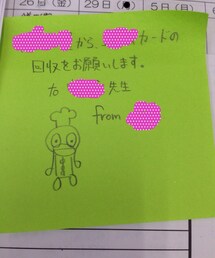 26日(金)
29日(
5日(月)
から、カードの
回収をお願いします。
to 先生
from